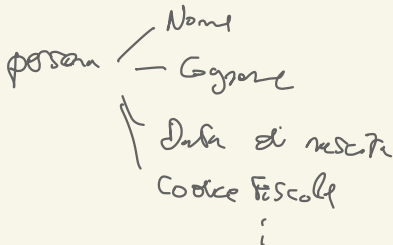 Nome
persona
Cognome
Data di nascita
Codice Fiscale